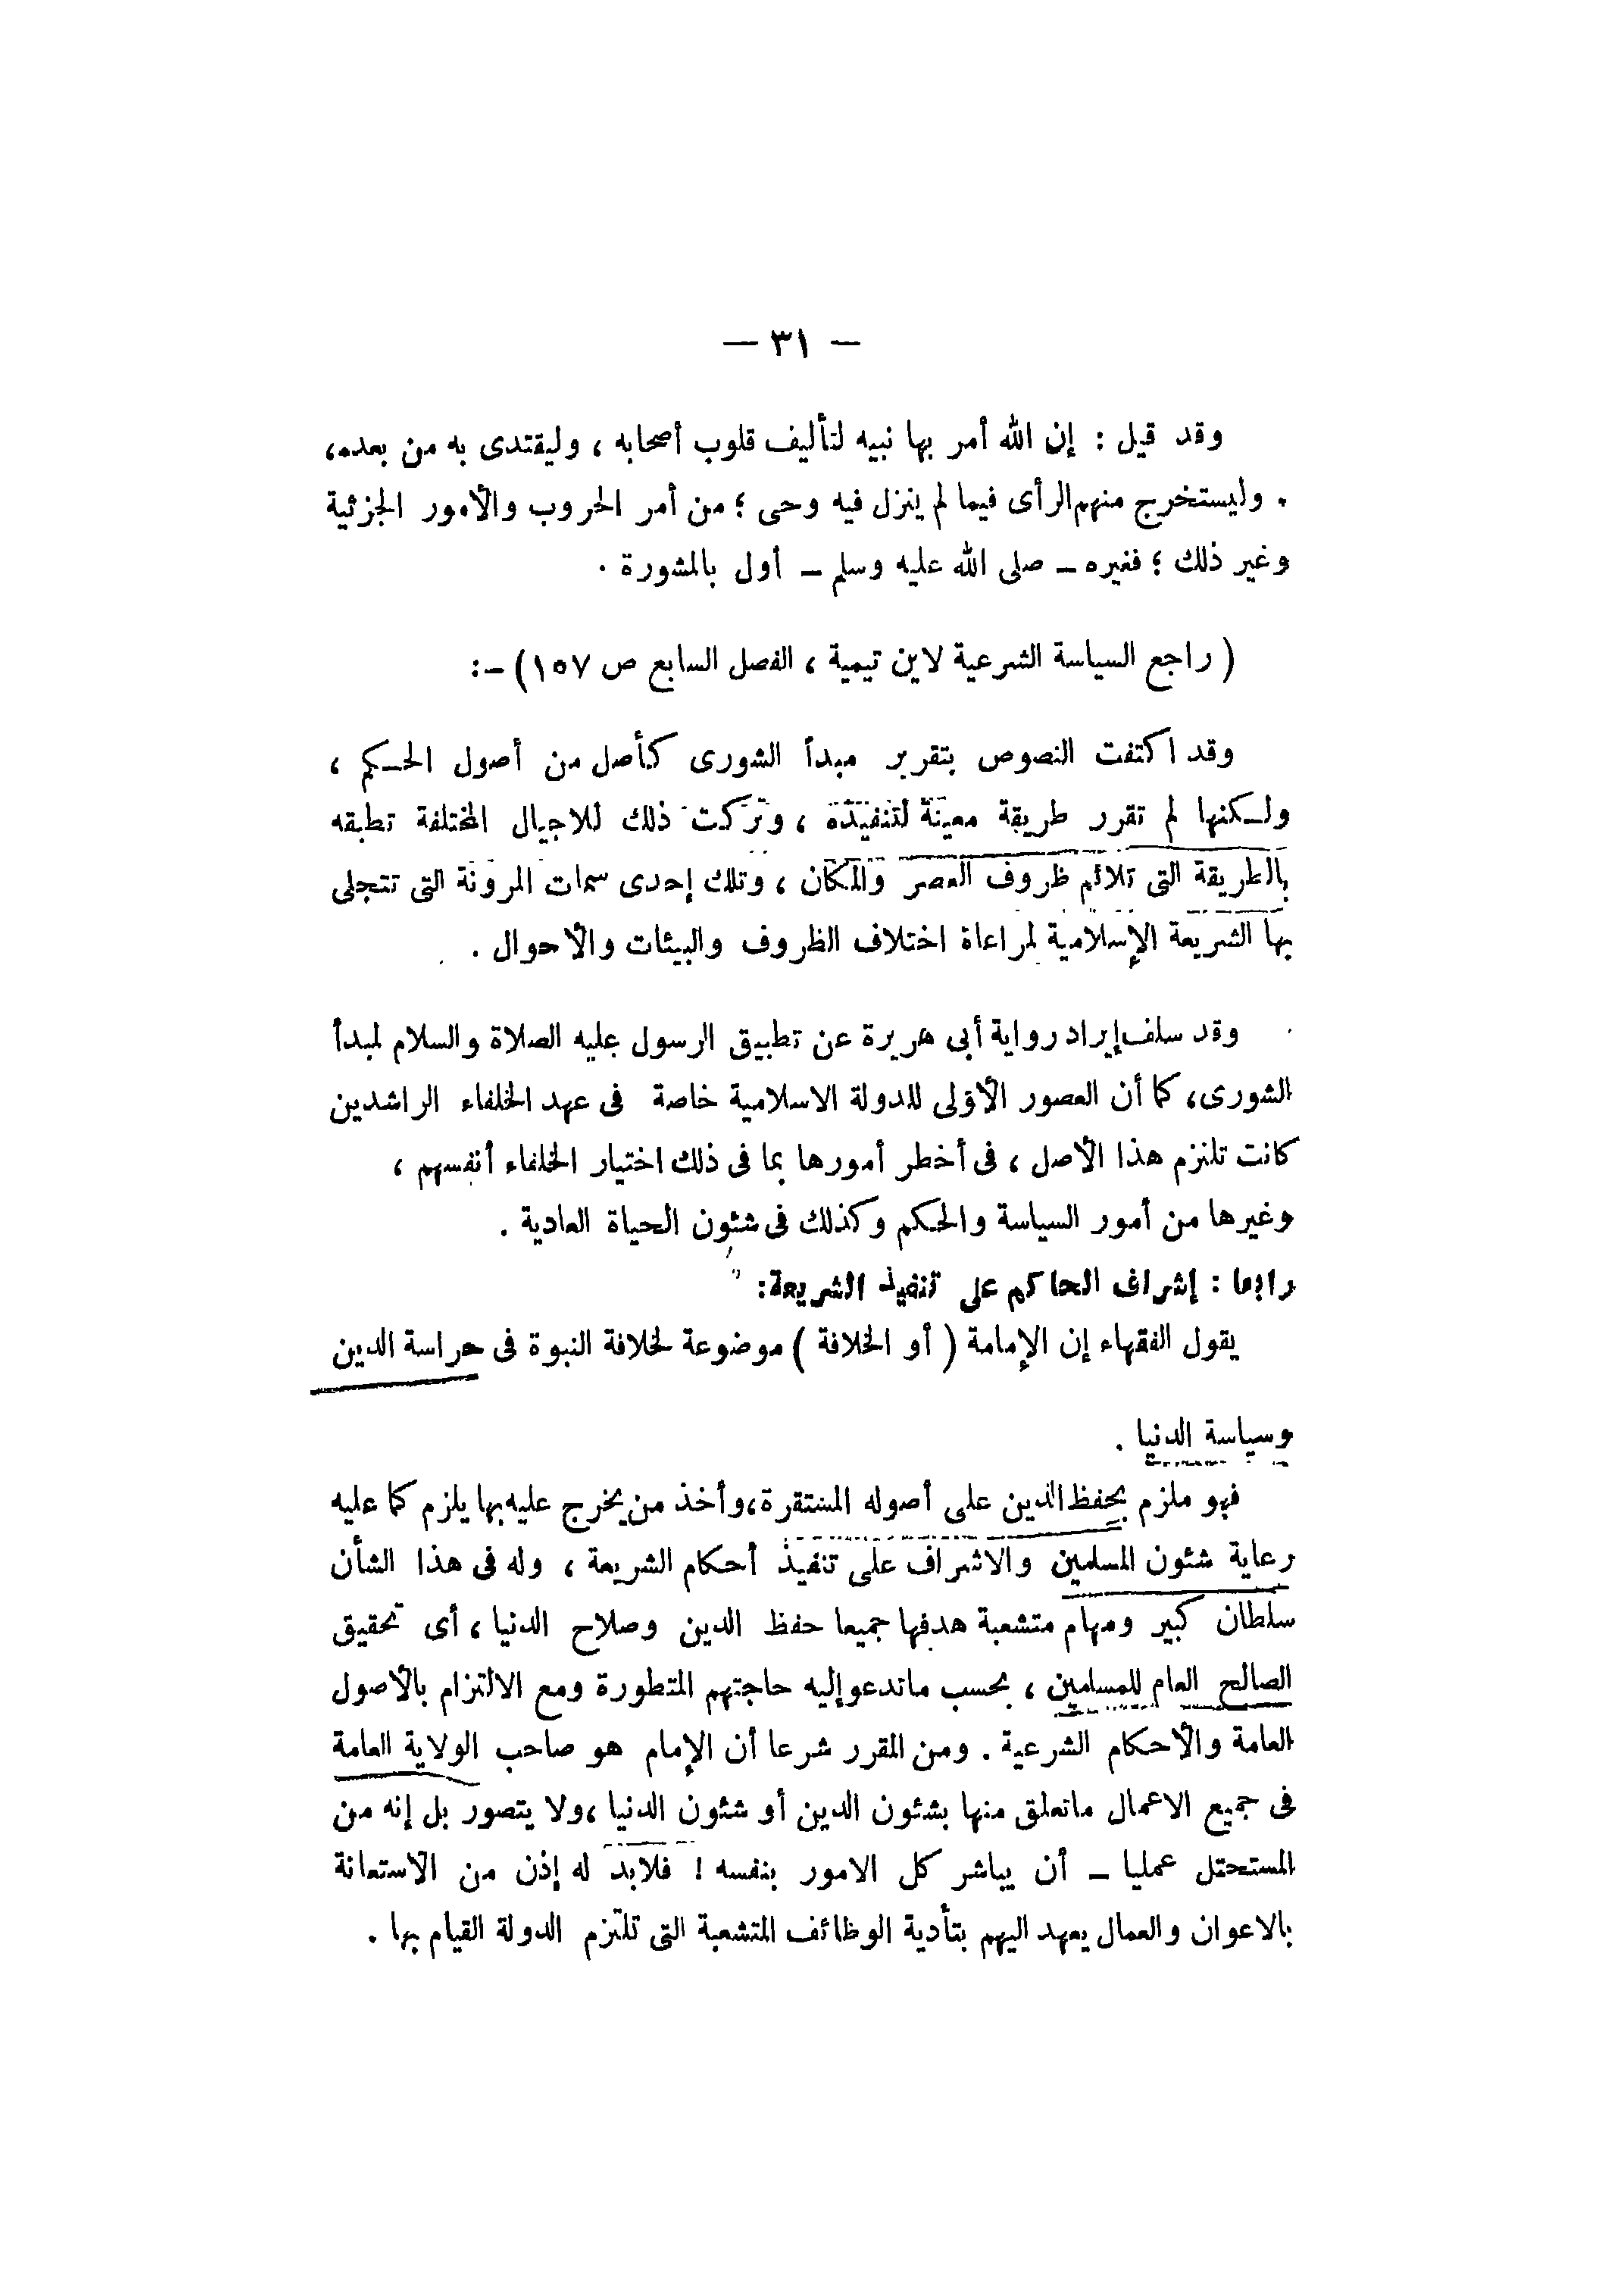 — ٣١ —
وقد قيل : إن الله أمر بها نبيه لتأليف قلوب أصحابه ، وليقتدى به من بعده،
وليستخرج منهم الرأى فيما لم ينزل فيه وحى ؛ من أمر الحروب والأمور الجزئية
وغير ذلك ؛ فغيره – صلى الله عليه وسلم – أول بالمشورة .
( راجع السياسة الشرعية لابن تيمية ، الفصل السابع ص ١٥٧) –:
وقد اكتفت النصوص بتقرير مبدأ الشورى كأصل من أصول الحكم ،
ولكنها لم تقرر طريقة معينة لتنفيذه ، وتركت ذلك للاجيال المختلفة تطبقه
بالطريقة التى تلائم ظروف العصر والمكان ، وتلك إحدى سمات المرونة التى تتجلى
بها الشريعة الإسلامية لمراعاة اختلاف الظروف والبيئات والأحوال .
وقد سلف إيراد رواية أبى هريرة عن تطبيق الرسول عليه الصلاة والسلام لمبدأ
الشورى، كما أن العصور الأولى للدولة الاسلامية خاصة فى عهد الخلفاء الراشدين
كانت تلتزم هذا الأصل ، فى أخطر أمورها بما فى ذلك اختيار الخلفاء أنفسهم ،
وغيرها من أمور السياسة والحكم وكذلك فى شئون الحياة العادية .
رابعا : إشراف الحاكم على تنفيذ الشريعة:
يقول الفقهاء إن الإمامة ( أو الخلافة ) موضوعة لخلافة النبوة فى حراسة الدين
وسياسة الدنيا .
فهو ملزم بحفظ الدين على أصوله المستقرة،وأخذ من يخرج عليه بها يلزم كما عليه
رعاية شئون المسلمين والاشراف على تنفيذ أحكام الشريعة ، وله فى هذا الشأن
سلطان كبير ومهام متشعبة هدفها جميعا حفظ الدين وصلاح الدنيا ، أى تحقيق
الصالح العام للمسلمين ، بحسب ماتدعو إليه حاجتهم المتطورة ومع الالتزام بالأصول
العامة والأحكام الشرعية . ومن المقرر شرعا أن الإمام هو صاحب الولاية العامة
فى جميع الاعمال ماتعلق منها بشئون الدين أو شئون الدنيا ،ولا يتصور بل إنه من
المستحتل عمليا – أن يباشر كل الامور بنفسه ! فلابد له إذن من الاستعانة
بالاعوان والعمال يعهد اليهم بتأدية الوظائف المتشعبة التى تلتزم الدولة القيام بها .